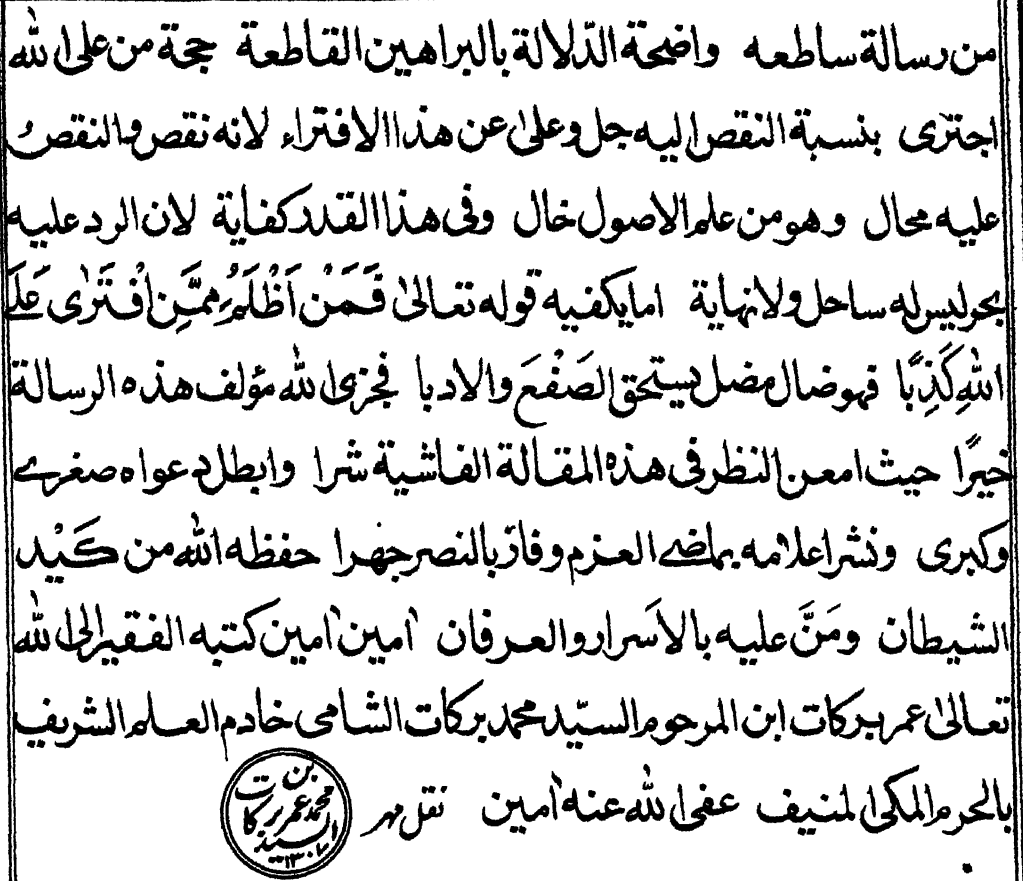 من رسالة ساطعه واضحة الدّلالة بالبراهين القاطعة حجة من على الله
اجترى بنسبة النقص اليه جل وعلىٰ عن هذا الافتراء لانه نقص والنقص
عليه محال وهو من علم الاصول خال وفى هذا القدر كفاية لان الرد عليه
بحر ليس له ساحل ولا نهاية اما يكفيه قوله تعالىٰ فَمَنْ اَظْلَمُ مِمَّنِ افْتَرٰى عَلَے
اللهِ كَذِبًا فهو ضال مضل يستحق الصَفْعَ والادبا فجزى الله مؤلف هذه الرسالة
خيرًا حيث امعن النظر فى هذه المقالة الفاشية شرا وابطل دعواه صغرے
وكبرى ونشر اعلامه بماضے العزم وفاز بالنصر جهرا حفظه الله من كَيْد
الشيطان ومَنَّ عليه بالاَسرار والعرفان اٰمين اٰمين كتبه الفقير الى الله
تعالىٰ عمر بركات ابن المرحوم السيّد محمد بركات الشامى خادم العلم الشريف
بالحرم المكى المنيف عفى الله عنه اٰمين نقل مهر
السيد عمر بركات بن محمد